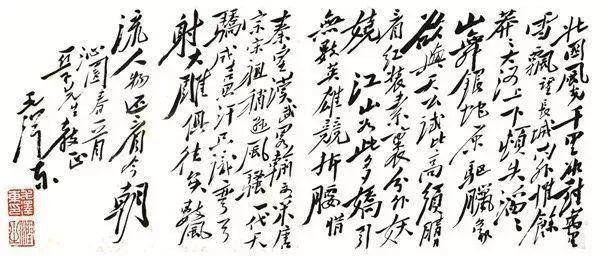 北國風光千里冰封萬里
雪飄望長城內外惟餘
莽々大河上下頓失滔々
山舞銀蛇原驅臘象
欲與天公試比高須晴日
看紅裝素裹分外妖
嬈 江山如此多嬌引
無數英雄競折腰惜
秦皇漢武略輸文采唐
宗宋祖稍遜風騷一代天
驕成吉思汗只識彎弓
射大雕俱往矣數風
流人物還看今朝
沁園春一首
亞子先生教正
毛澤東